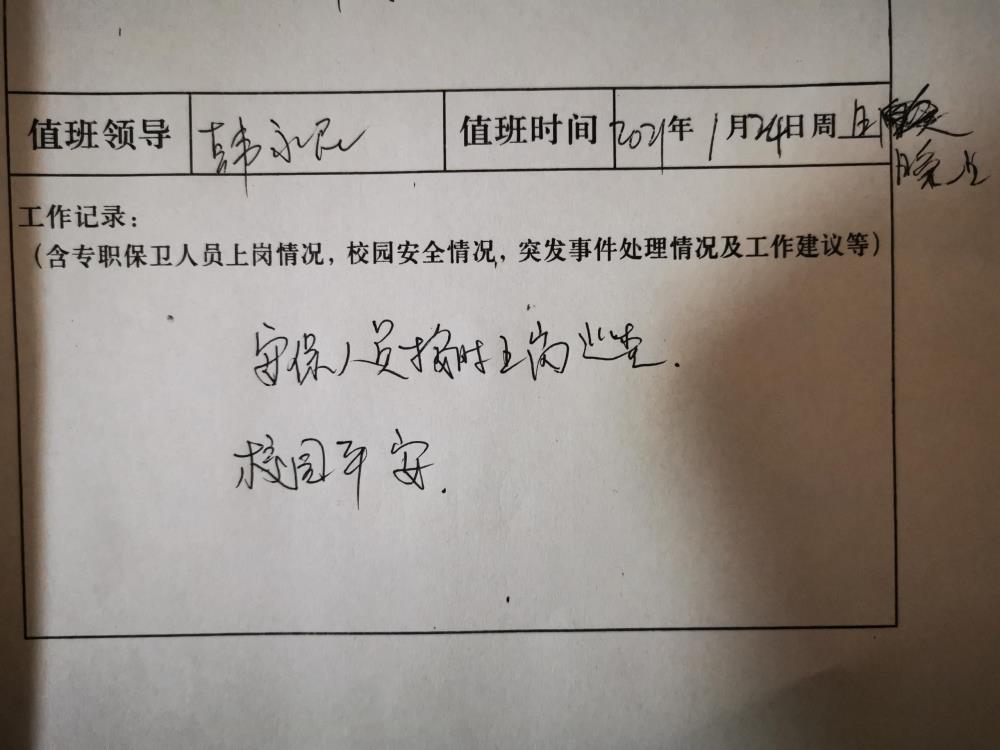 值班领导 韩永民 值班时间 2021年1月24日周日
晚上
工作记录：
（含专职保卫人员上岗情况，校园安全情况，突发事件处理情况及工作建议等）
安保人员按时上岗巡查.
校园平安.